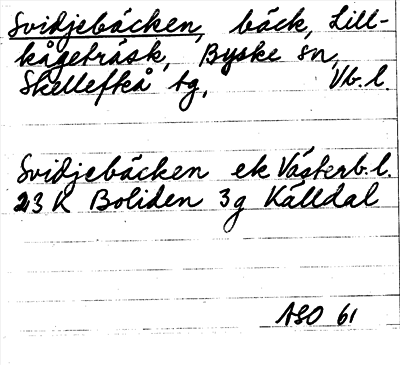 Svidjebäcken, bäck, Lill-
kågeträsk, Byske sn,
Skellefteå tg, Vb. l.
Svidjebäcken ek Västerb. l.
23 K Boliden 3g Källdal
ASO 61